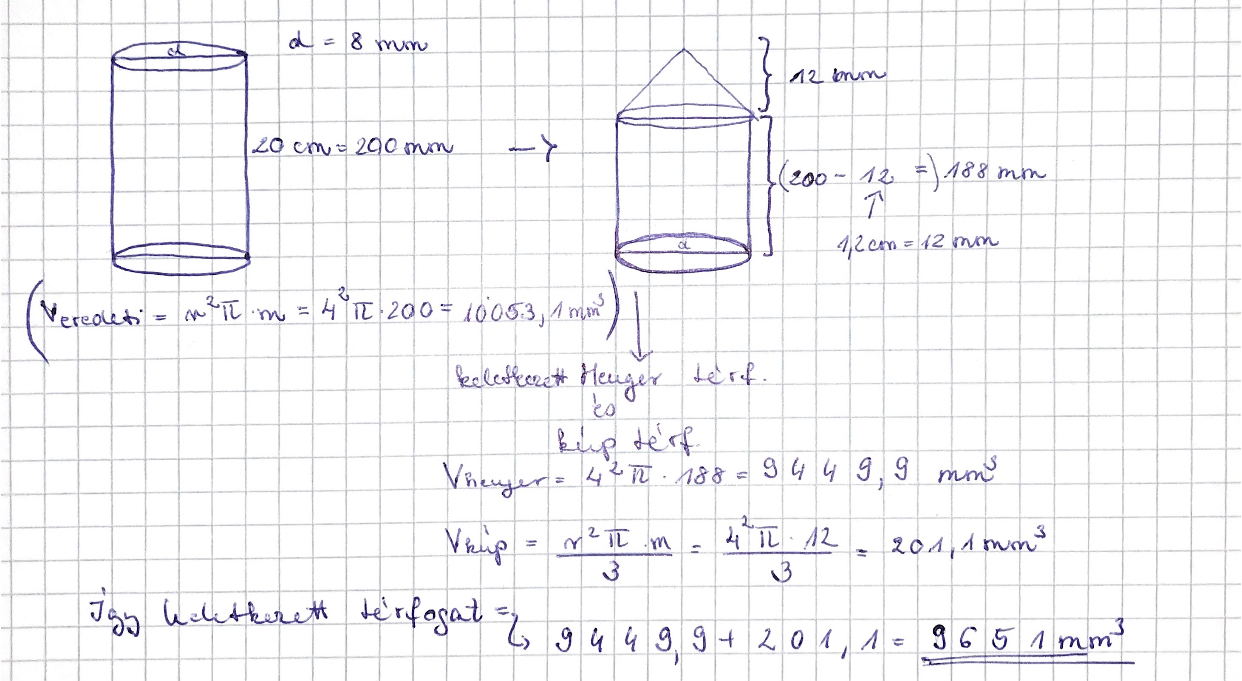 d
d = 8 mm
12 mm
20 cm = 200 mm →
(200 - 12 =) 188 mm
↑
1,2 cm = 12 mm
d
(Veredeti = r²π · m = 4²π · 200 = 10053,1 mm³)
keletkezett Henger térf.
és
kúp térf.
Vhenger = 4²π · 188 = 9449,9 mm³
Vkúp = r²π · m / 3 = 4²π · 12 / 3 = 201,1 mm³
Így keletkezett térfogat =
↳ 9449,9 + 201,1 = 9651 mm³